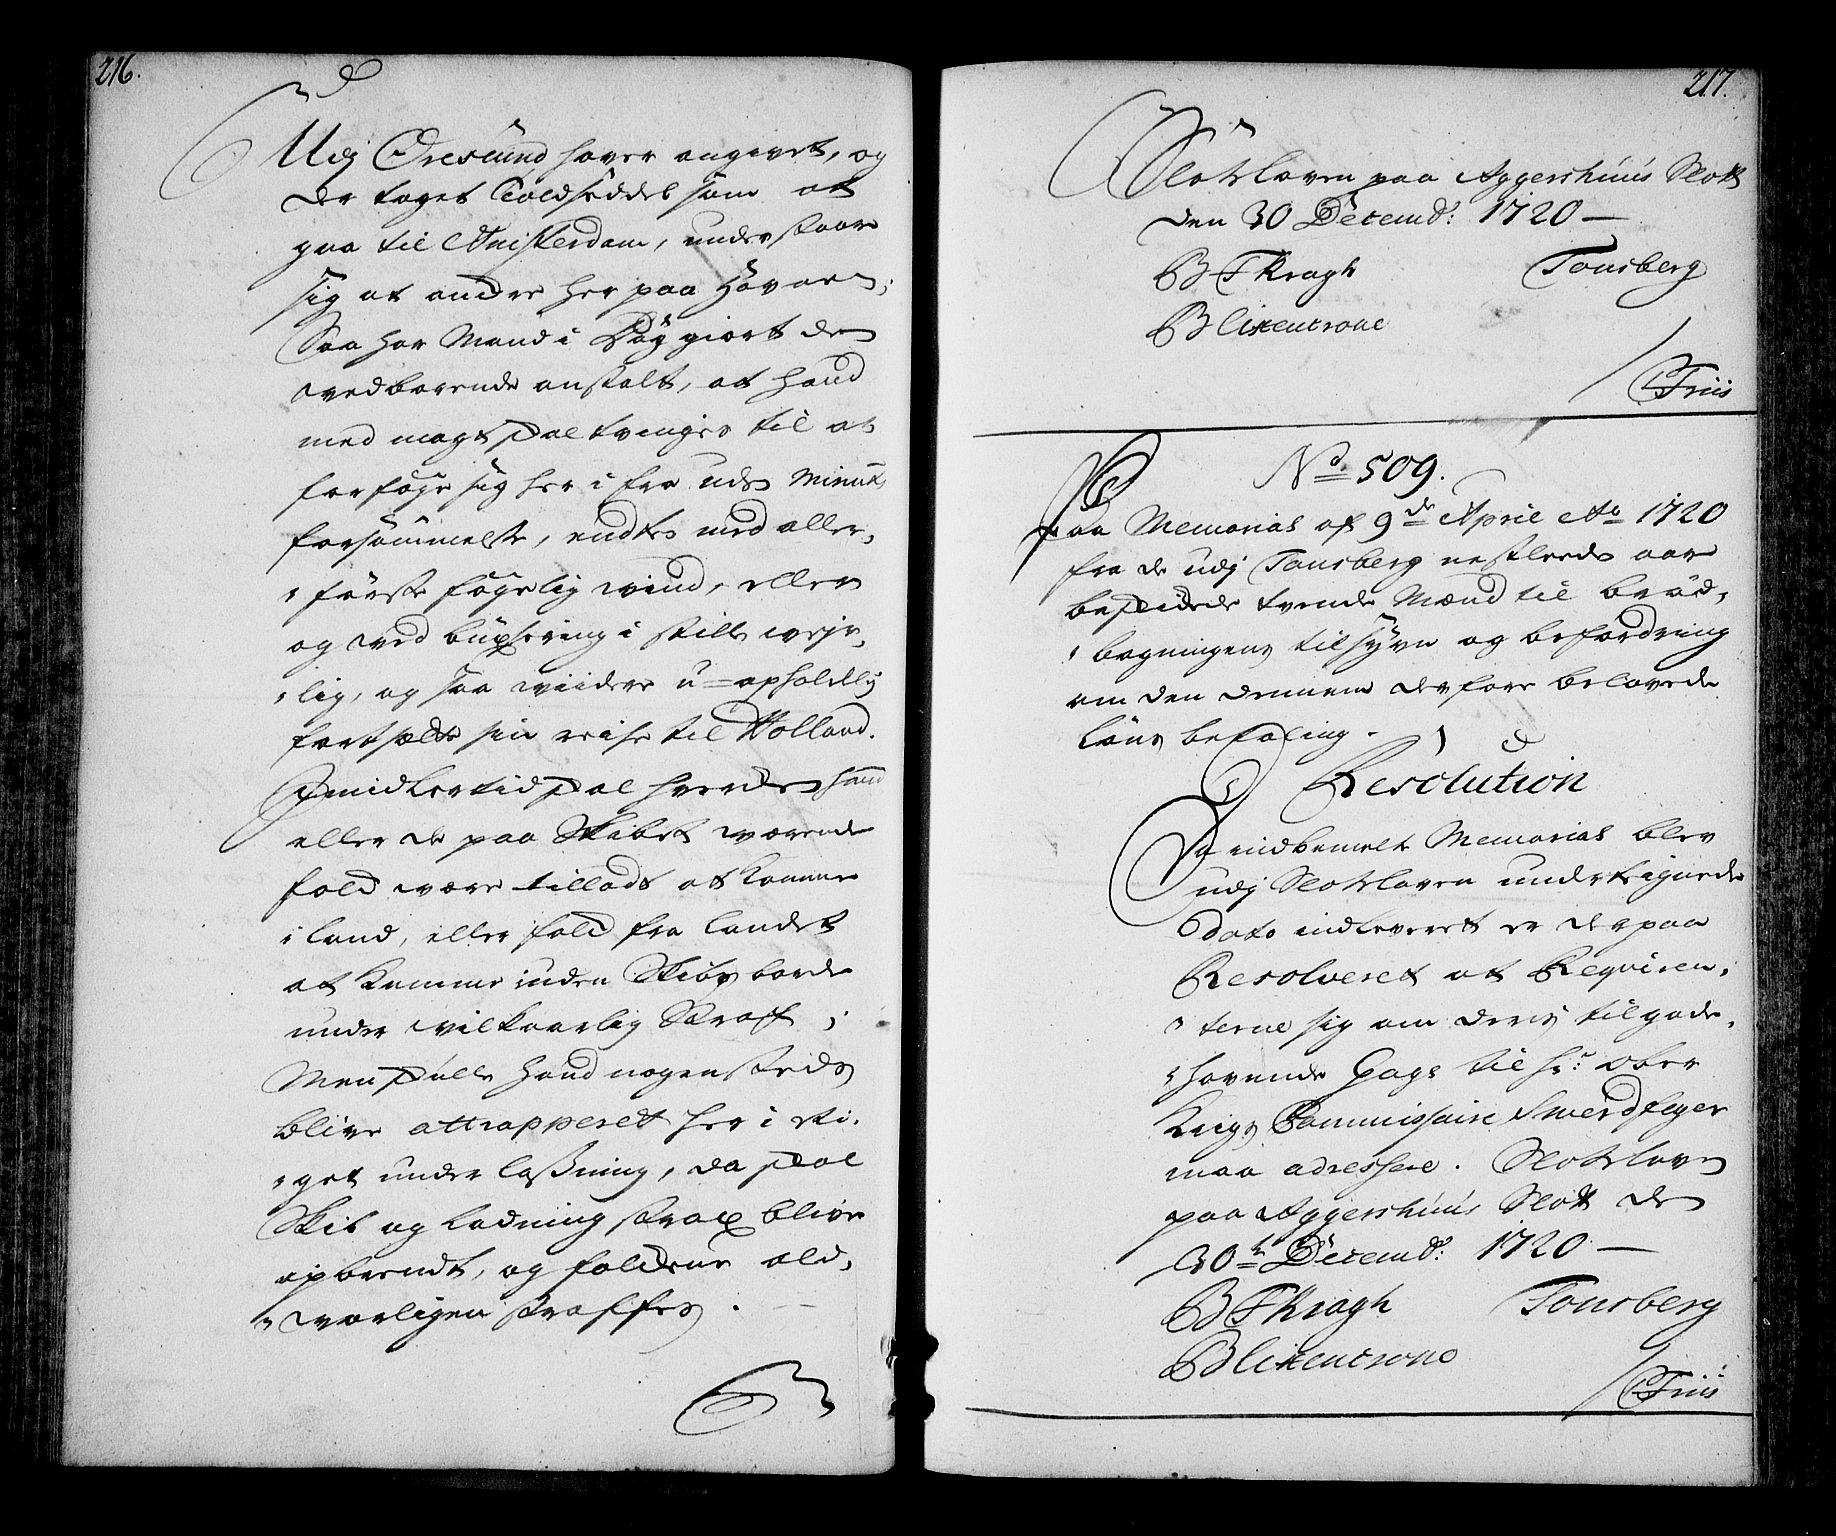 216.
Udj Øresund hafver angivet, og
der taget Toldseddel som at
gaa til Amsterdam, understaar
sig at andre her paa Hafvnen;
Saa har Mand i Dag giort den
vedbørende anstalt, at hand
med magt skal tvinges til at
forføje sig her i fra uden Minutz
forsømmelse, endten med aller,
første føyelig wind, eller
og ved buxering i stille wejr,
lig, og saa wiidere u-opholdlig
fortsætte sin reise til Holland.
Jmidlertid skal hverken hand
eller de paa Skibet værende
folck være tilladt at komme
i land, eller folck fra landet
at komme inden Skibs borde
under vilkaarlig Straf;
Men skulle hand nogensteds
blive attrapperet her i Ri,
get under laszning, da skal
Skib og ladning strax blive
opbrendt, og folckene ald,
vorligen straffes.
217.
Slotsloven paa Aggershuus Slott
den 30 Decemb: 1720
B F Kragh Tonsberg
Blixencrone
/ C Friis
No. 509.
Paa Memorial af 9de April Ao 1720
fra de udj Tonsberg nestleeden aar
beskikkede tvende Mænd til brød,
bagningens tilsyn og befordring
om den dennem derfore belovede
Løns betaling.
Resolution
Da indbemelte Memorial blev
udj Slotsloven undertegnede
dato indleveret er derpaa
Resolveret at Requiren,
terne sig om deris tilgode,
havende Gage til Hr: Ober
Krigs Commissaire Smerdfeger
maa adressere. Slotsloven
paa Aggershuus Slott den
30te Decemb: 1720
B F Kragh Tonsberg
Blixencrone
/ C Friis